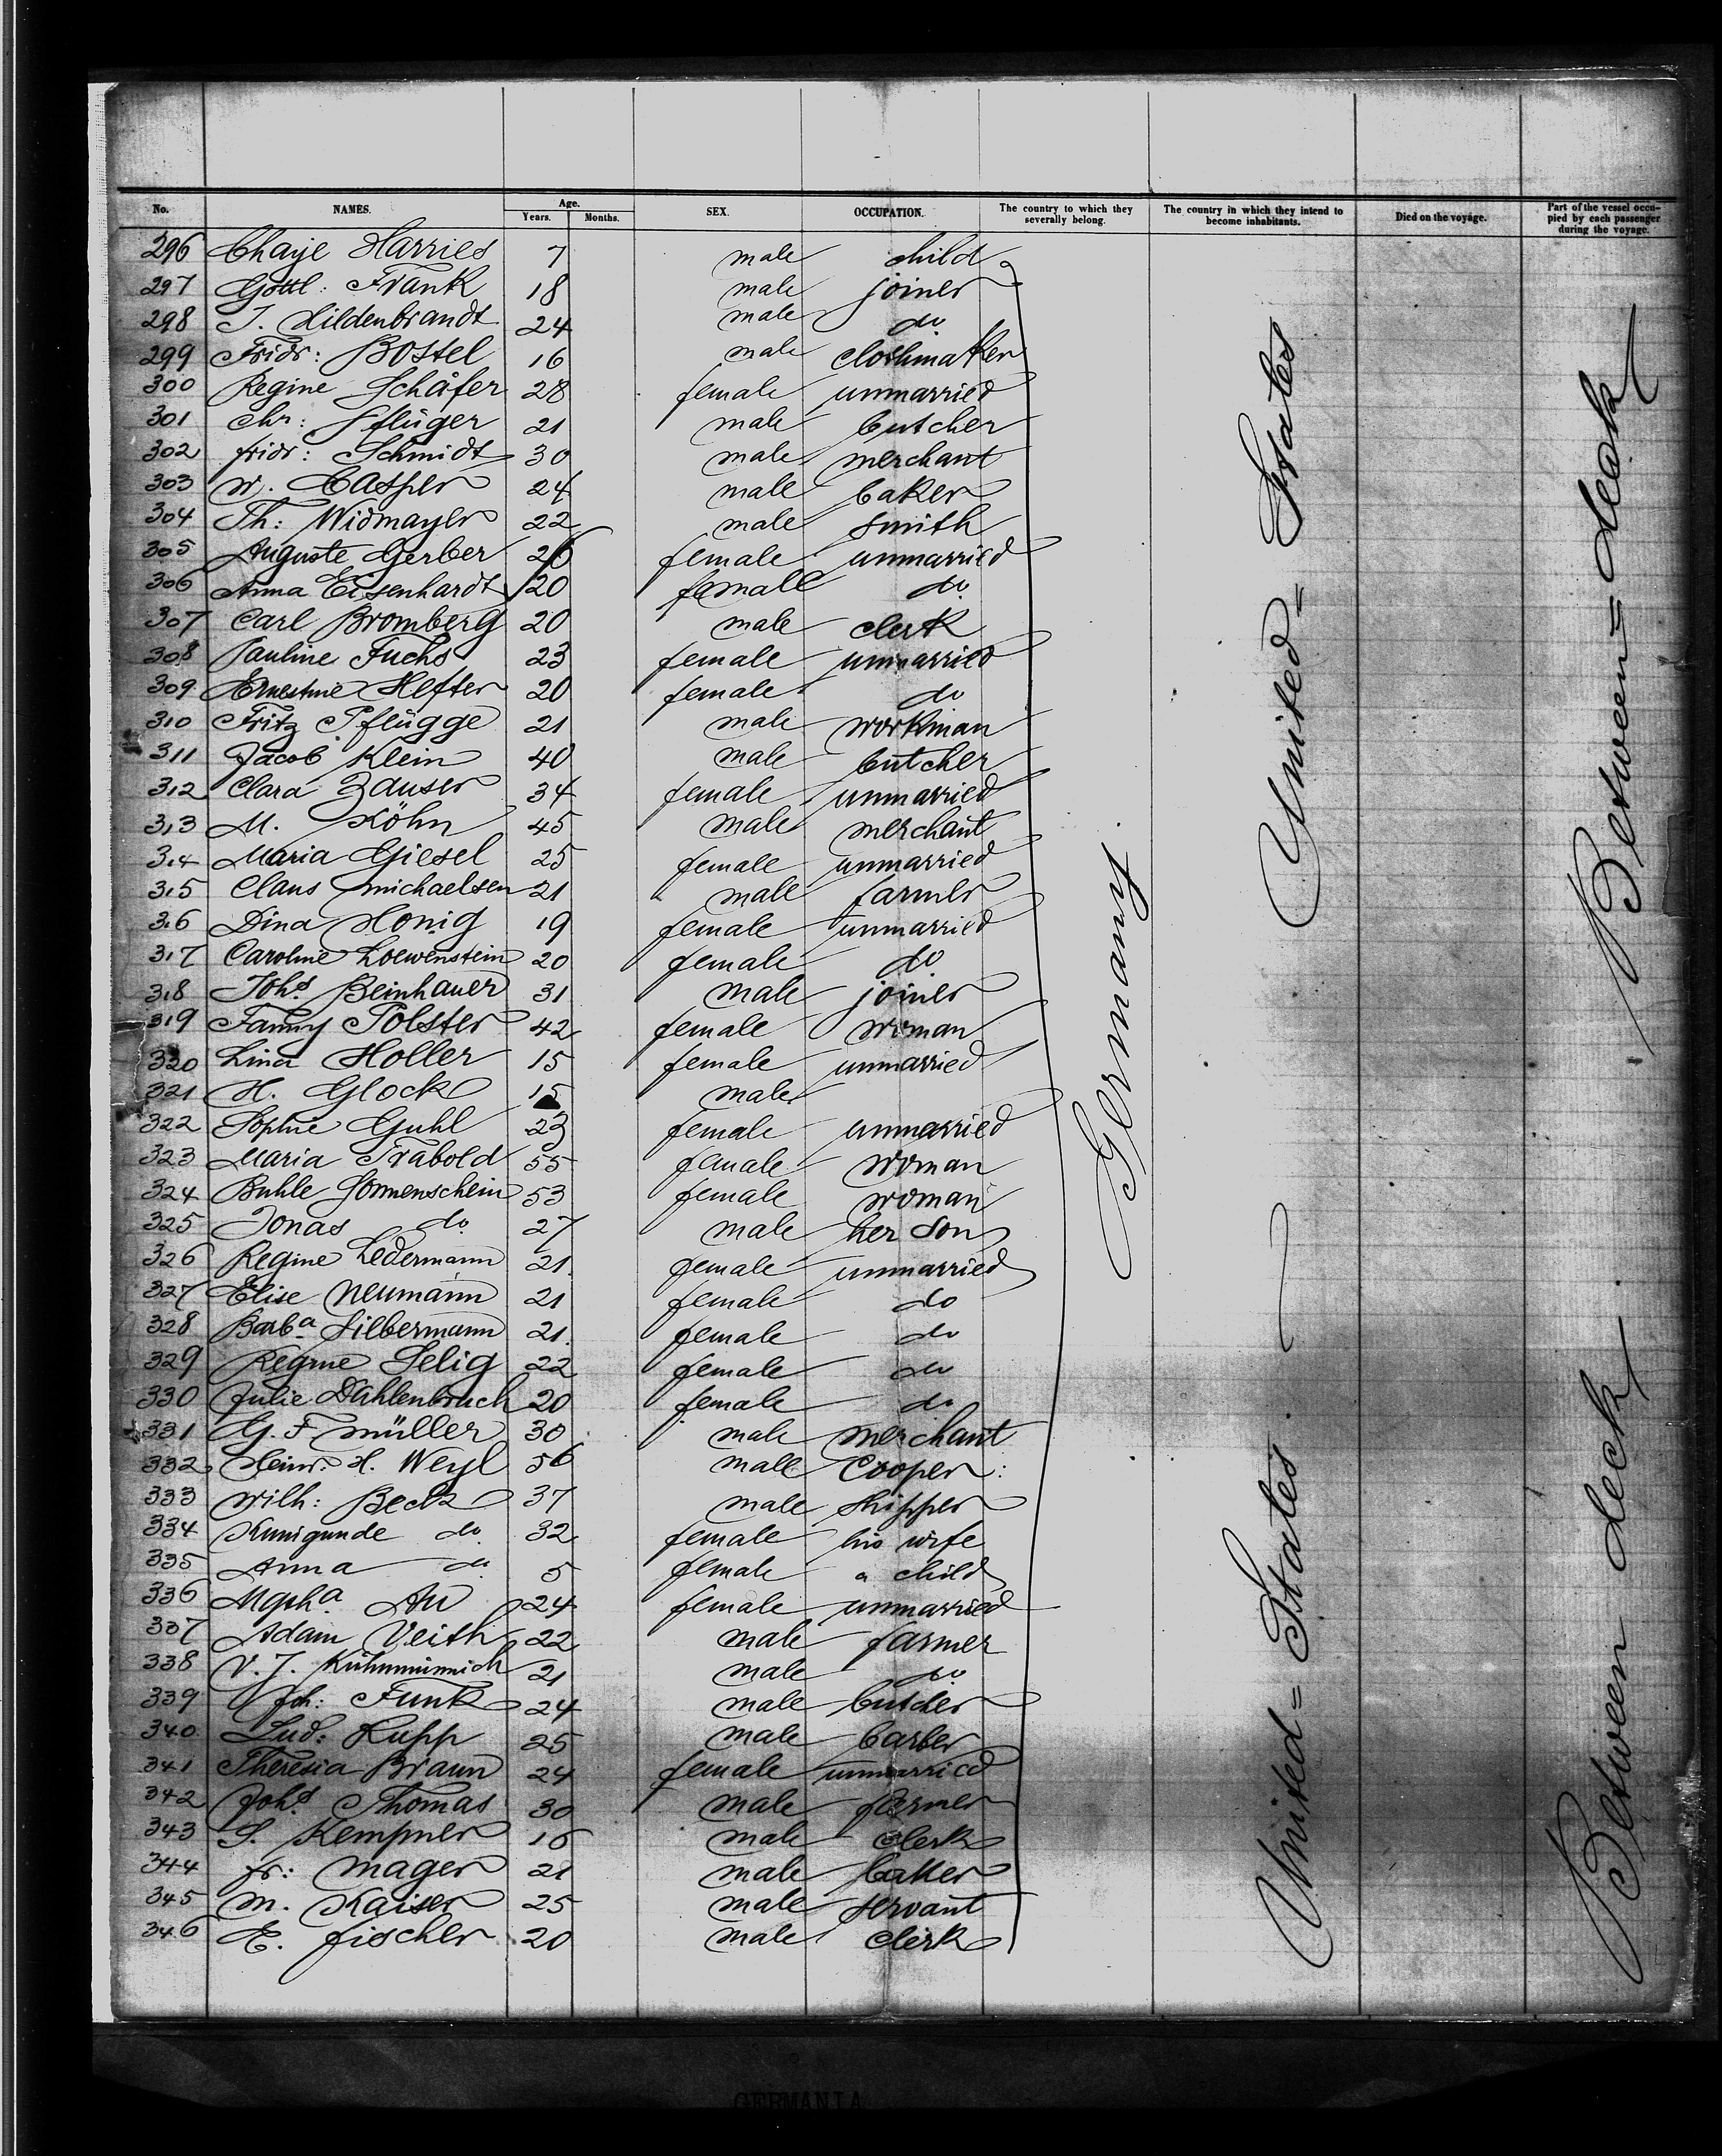 No. NAMES. Age. Years. Months. SEX. OCCUPATION. The country to which they severally belong. The country in which they intend to become inhabitants. Died on the voyage. Part of the vessel occu-pied by each passenger during the voyage.
296 Chaje Harries 7 male child
297 Gottl: Frank 18 male joiner
298 J. Hildenbrandt 24 male do
299 Fridr: Bostel 16 male clothmaker
300 Regine Schäfer 28 female unmarried
301 Chr: Pflüger 21 male butcher
302 fridr: Schmidt 30 male merchant
303 W. Casper 24 male baker
304 Th: Widmayer 22 male smith
305 Auguste Gerber 26 female unmarried
306 Anna Eisenhardt 20 female do
307 Carl Bromberg 20 male clerk
308 Pauline Fuchs 23 female unmarried
309 Ernestine Hefter 20 female do
310 Fritz Pflügge 21 male workman
311 Jacob Klein 40 male butcher
312 Clara Zauser 34 female unmarried
313 M. Köhn 45 male merchant
314 Maria Giesel 25 female unmarried
315 Claus Michaelsen 21 male farmer
316 Dina Honig 19 female unmarried
317 Caroline Loewenstein 20 female do
318 Johs Beinhauer 31 male joiner
319 Fanny Polster 42 female woman
320 Lina Holler 15 female unmarried
321 H. Glock 15 male
322 Sophie Guhl 23 female unmarried
323 Maria Trabold 55 female woman
324 Buhle Sonnenschein 53 female woman
325 Jonas do 27 male her son
326 Regine Ledermann 21 female unmarried
327 Elise Neumann 21 female do
328 Barba Silbermann 21 female do
329 Regine Selig 22 female do
330 Julie Dahlenbruch 20 female do
331 G. F. Müller 30 male merchant
332 Heinr. H. Weyl 56 male Cooper:
333 Wilh: Beck 37 male skipper
334 Kunigunde do 32 female his wife
335 Anna do 5 female a child
336 Au 24 female unmarried
337 Adam Veith 22 male farmer
338 V. J. 21 male do
339 Joh: Funk 24 male butcher
340 Lud: Rupp 25 male barber
341 Theresia Braun 24 female unmarried
342 Johs Thomas 30 male farmer
343 S. Kempner 16 male clerk
344 fr: Mager 21 male baker
345 M. Kaiser 25 male servant
346 E. fischer 20 male clerk
Germany
United = States
United = States
Between = deck
Between deck
GERMANIA